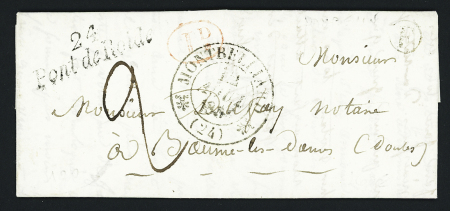 24
Pont de Roide
1D
MONTBELLIARD
(24)
2
Monsieur
Monsieur notaire
à Baume-les-dames (Doubs)